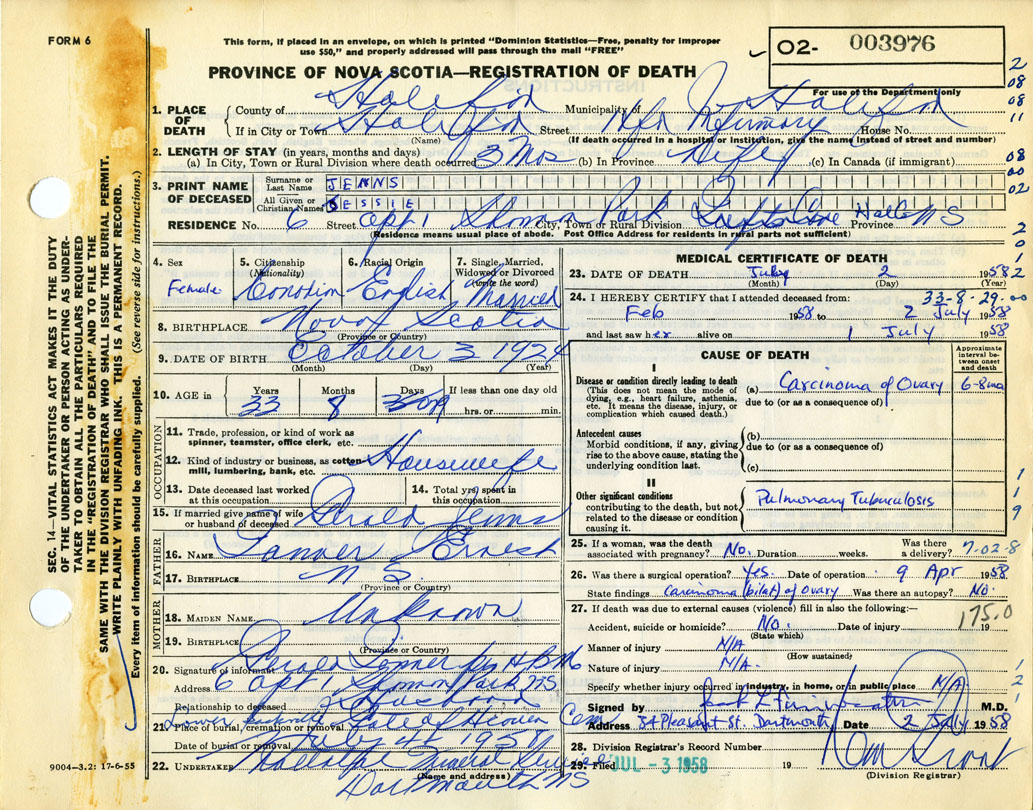 FORM 6
This form, if placed in an envelope, on which is printed "Dominion Statistics—Free, penalty for improper
use $50," and properly addressed will pass through the mail "FREE"
O2- 003976
PROVINCE OF NOVA SCOTIA—REGISTRATION OF DEATH
For use of the Department only
1. PLACE OF DEATH
County of Halifax Municipality of Halifax
If in City or Town Halifax Street Hfx Infirmary House No.
(Name) (If death occurred in a hospital or institution, give the name instead of street and number)
2. LENGTH OF STAY (in years, months and days)
(a) In City, Town or Rural Division where death occurred 3 Mos (b) In Province Life (c) In Canada (if immigrant)
3. PRINT NAME OF DECEASED
Surname or Last Name JENNS
All Given or Christian Names JESSIE
RESIDENCE No. 6 Street Apt 1 Shannon Park City, Town or Rural Division Tufts Cove Halifax Province NS
(Residence means usual place of abode. Post Office Address for residents in rural parts not sufficient)
4. Sex Female
5. Citizenship (Nationality) Canadian
6. Racial Origin English
7. Single, Married, Widowed or Divorced (write the word) Married
8. BIRTHPLACE Nova Scotia
(Province or Country)
9. DATE OF BIRTH October 3 1924
(Month) (Day) (Year)
10. AGE in Years 33 Months 8 Days If less than one day old hrs. or min.
OCCUPATION
11. Trade, profession, or kind of work as spinner, teamster, office clerk, etc.
12. Kind of industry or business, as cotton mill, lumbering, bank, etc. Housewife
13. Date deceased last worked at this occupation
14. Total yrs. spent in this occupation
15. If married give name of wife or husband of deceased Gerald Jenns
FATHER
16. NAME Tanner Ernest
17. BIRTHPLACE N S.
(Province or Country)
MOTHER
18. MAIDEN NAME Unknown
19. BIRTHPLACE
(Province or Country)
20. Signature of informant Gerald Jenner
Address 6 Apt 1 Shannon Park NS
Relationship to deceased Husband
21. Place of burial, cremation or removal Gate of Heaven Cem
Lower Sackville
Date of burial or removal July 4th 1958
22. UNDERTAKER Funeral Service
(Name and address)
Dartmouth NS
MEDICAL CERTIFICATE OF DEATH
23. DATE OF DEATH July 2 1958
(Month) (Day) (Year)
24. I HEREBY CERTIFY that I attended deceased from: 33-8-29
Feb 1958 to 2 July 1958
and last saw her alive on 1 July 1958
CAUSE OF DEATH
Approximate interval between onset and death
I
Disease or condition directly leading to death
(This does not mean the mode of dying, e.g., heart failure, asthenia, etc. It means the disease, injury, or complication which caused death.)
(a) Carcinoma of Ovary 6-8 mo
due to (or as a consequence of)
Antecedent causes
Morbid conditions, if any, giving rise to the above cause, stating the underlying condition last.
(b)
due to (or as a consequence of)
(c)
II
Other significant conditions
contributing to the death, but not related to the disease or condition causing it.
Pulmonary Tuberculosis
25. If a woman, was the death associated with pregnancy? No. Duration weeks. Was there a delivery? 7-02-8
26. Was there a surgical operation? Yes. Date of operation 9 Apr 1958
State findings Carcinoma (bilat) of Ovary Was there an autopsy? No.
27. If death was due to external causes (violence) fill in also the following:—
175.0
Accident, suicide or homicide? No. Date of injury 19
(State which)
Manner of injury N/A
(How sustained)
Nature of injury N/A.
Specify whether injury occurred in industry, in home, or in public place N/A
Signed by M.D.
Address 34 Pleasant St. Dartmouth Date 2 July 1958
28. Division Registrar's Record Number
29. Filed JUL - 3 1958 19
(Division Registrar)
9004—3.2: 17-6-55
SEC. 14—VITAL STATISTICS ACT MAKES IT THE DUTY
OF THE UNDERTAKER OR PERSON ACTING AS UNDER-
TAKER TO OBTAIN ALL THE PARTICULARS REQUIRED
IN THE "REGISTRATION OF DEATH" AND TO FILE THE
SAME WITH THE DIVISION REGISTRAR WHO SHALL ISSUE THE BURIAL PERMIT.
WRITE PLAINLY WITH UNFADING INK. THIS IS A PERMANENT RECORD.
Every item of information should be carefully supplied. (See reverse side for instructions.)